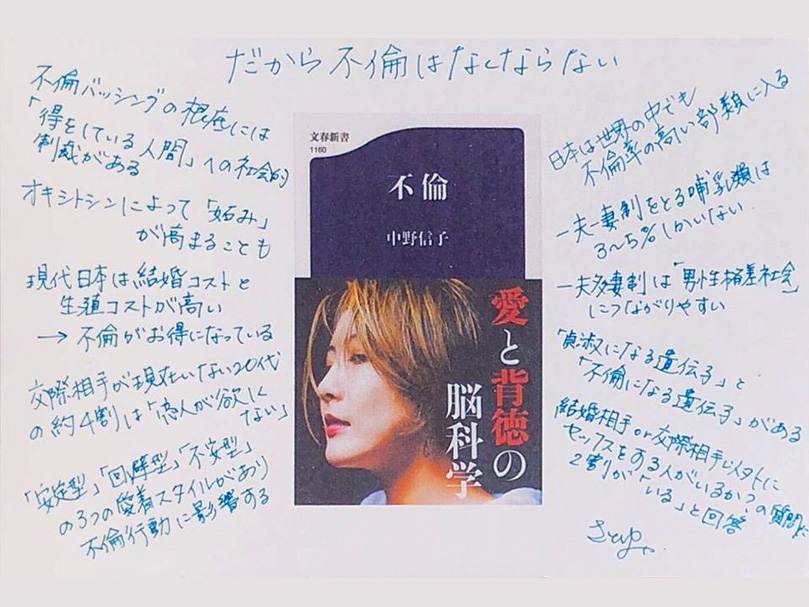 だから不倫はなくならない
不倫バッシングの根底には
「得をしている人間」への社会的
制裁がある
オキシトシンによって「妬み」
が高まることも
現代日本は結婚コストと
生殖コストが高い
→ 不倫がお得になっている
交際相手が現在いない20代
の約4割は「恋人が欲しく
ない」
「安定型」「回避型」「不安型」
の3つの愛着スタイルがあり
不倫行動に影響する
文春新書
1160
不倫
中野信子
愛と背徳の
脳科学
日本は世界の中でも
不倫率の高い部類に入る
一夫一妻制をとる哺乳類は
3〜5%しかいない
一夫多妻制は「男性格差社会」
につながりやすい
「貞淑になる遺伝子」と
「不倫になる遺伝子」がある
結婚相手or交際相手以外に
セックスをする人がいるか?の質問に
2割が「いる」と回答